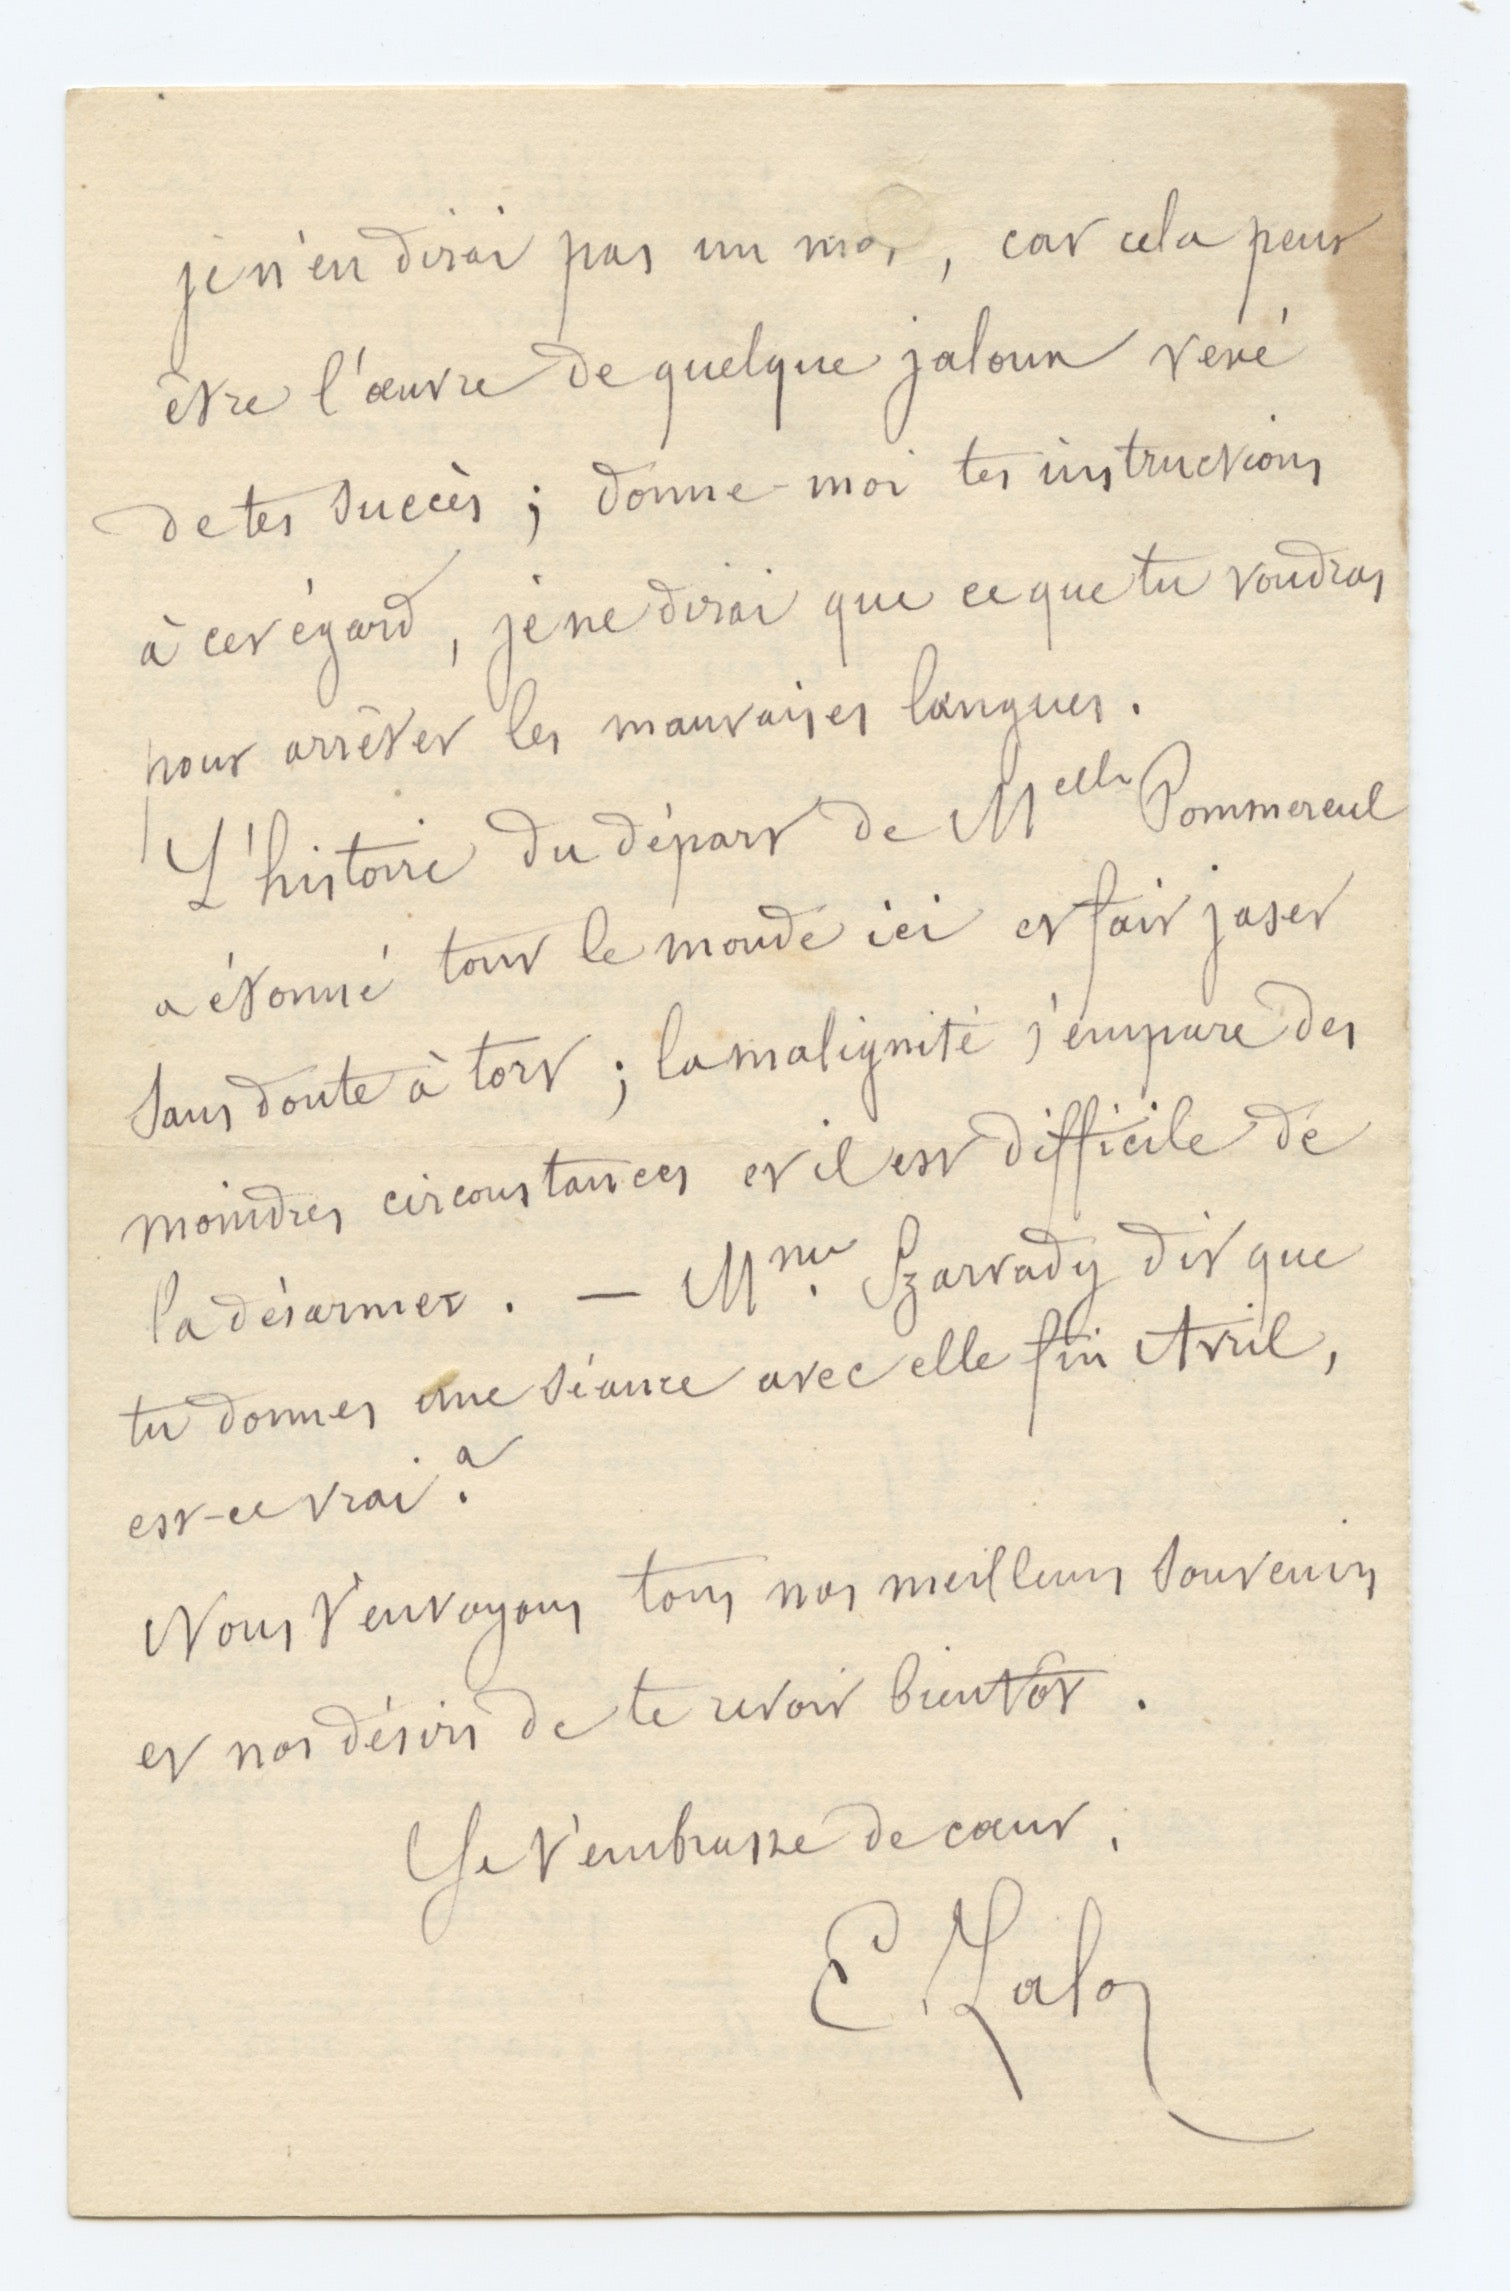 je n'en dirai pas un mot, car cela peut
être l'œuvre de quelque jaloux vexé
de tes succès ; donne-moi tes instructions
à cet égard, je ne dirai que ce que tu voudras
pour arrêter les mauvaises langues.
L'histoire du départ de Melle Pommereul
a étonné tout le monde ici et fait jaser
sans doute à tort ; la malignité s'empare des
moindres circonstances et il est difficile de
la désarmer. — Mme. Szarvady dit que
tu donnes une séance avec elle fin Avril,
est-ce vrai ?
Nous t'envoyons tous nos meilleurs souvenirs
et nos désirs de te revoir bientôt.
Je t'embrasse de cœur,
E. Lalo